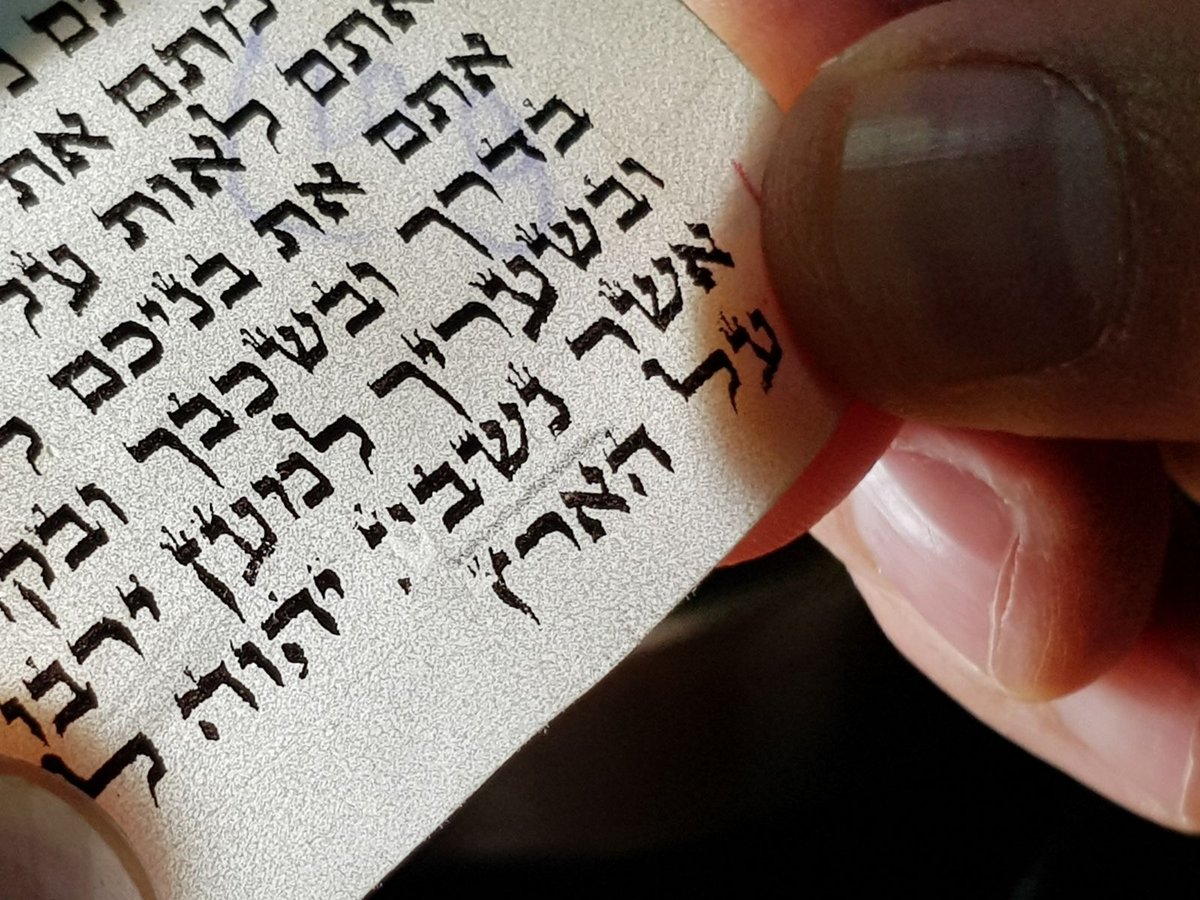 מתם את
אתם לאות על
אתם את בניכם
בדרך ובשכבך ובקו
ובשעריך למען ירבו
אשר נשבע יהוה ל
על הארץ